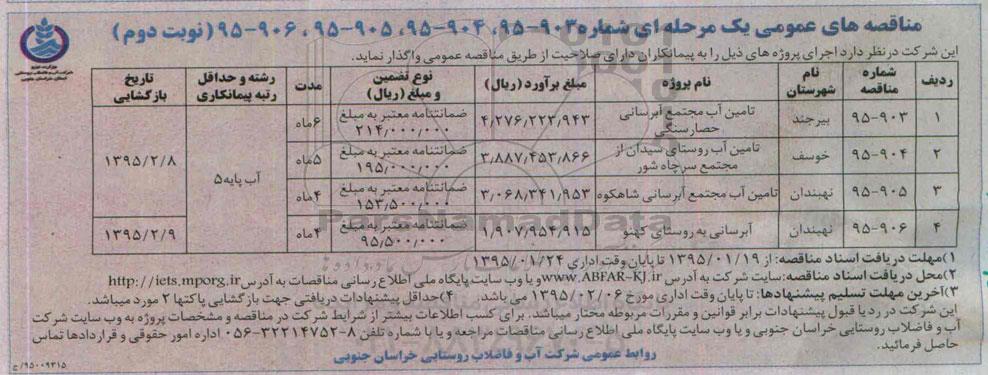 مناقصه های عمومی یک مرحله ای شماره ۹۰۳-۹۵، ۹۰۴-۹۵، ۹۰۵-۹۵، ۹۰۶-۹۵ (نوبت دوم)
این شرکت در نظر دارد اجرای پروژه های ذیل را به پیمانکاران دارای صلاحیت از طریق مناقصه عمومی واگذار نماید.
ردیف شماره مناقصه نام شهرستان نام پروژه مبلغ برآورد (ریال) نوع تضمین و مبلغ (ریال) مدت رشته و حداقل رتبه پیمانکاری تاریخ بازگشایی
۱ ۹۰۳-۹۵ بیرجند تامین آب مجتمع آبرسانی حصارسنگی ۴,۲۷۶,۲۲۳,۹۴۳ ضمانتنامه معتبر به مبلغ ۲۱۴,۰۰۰,۰۰۰ ۶ماه آب پایه ۵ ۱۳۹۵/۲/۸
۲ ۹۰۴-۹۵ خوسف تامین آب روستای سیدان از مجتمع سرچاه شور ۳,۸۸۷,۴۵۳,۸۶۶ ضمانتنامه معتبر به مبلغ ۱۹۵,۰۰۰,۰۰۰ ۵ماه
۳ ۹۰۵-۹۵ نهبندان تامین آب مجتمع آبرسانی شاهکوه ۳,۰۶۸,۳۴۱,۹۵۳ ضمانتنامه معتبر به مبلغ ۱۵۳,۵۰۰,۰۰۰ ۴ماه
۴ ۹۰۶-۹۵ نهبندان آبرسانی به روستای کهنو ۱,۹۰۷,۹۵۴,۹۱۵ ضمانتنامه معتبر به مبلغ ۹۵,۵۰۰,۰۰۰ ۴ماه ۱۳۹۵/۲/۹
۱)مهلت دریافت اسناد مناقصه: از ۱۳۹۵/۰۱/۱۹ تا پایان وقت اداری ۱۳۹۵/۰۱/۲۴
۲)محل دریافت اسناد مناقصه: سایت شرکت به آدرس www.ABFAR-KJ.ir و یا وب سایت پایگاه ملی اطلاع رسانی مناقصات به آدرس http://iets.mporg.ir
۳)آخرین مهلت تسلیم پیشنهادها: تا پایان وقت اداری مورخ ۱۳۹۵/۰۲/۰۶ می باشد. ۴)حداقل پیشنهادات دریافتی جهت بازگشایی پاکتها ۲ مورد میباشد.
این شرکت در رد یا قبول پیشنهادات برابر قوانین و مقررات مربوطه مختار میباشد. برای کسب اطلاعات بیشتر از شرایط شرکت در مناقصه و مشخصات پروژه به وب سایت شرکت
آب و فاضلاب روستایی خراسان جنوبی و یا وب سایت پایگاه ملی اطلاع رسانی مناقصات مراجعه و یا با شماره تلفن ۸-۳۲۲۱۴۷۵۲-۰۵۶ اداره امور حقوقی و قراردادها تماس
حاصل فرمائید.
روابط عمومی شرکت آب و فاضلاب روستایی خراسان جنوبی
۹۵۰۰۹۳۱۵/ج
ParsNamadData